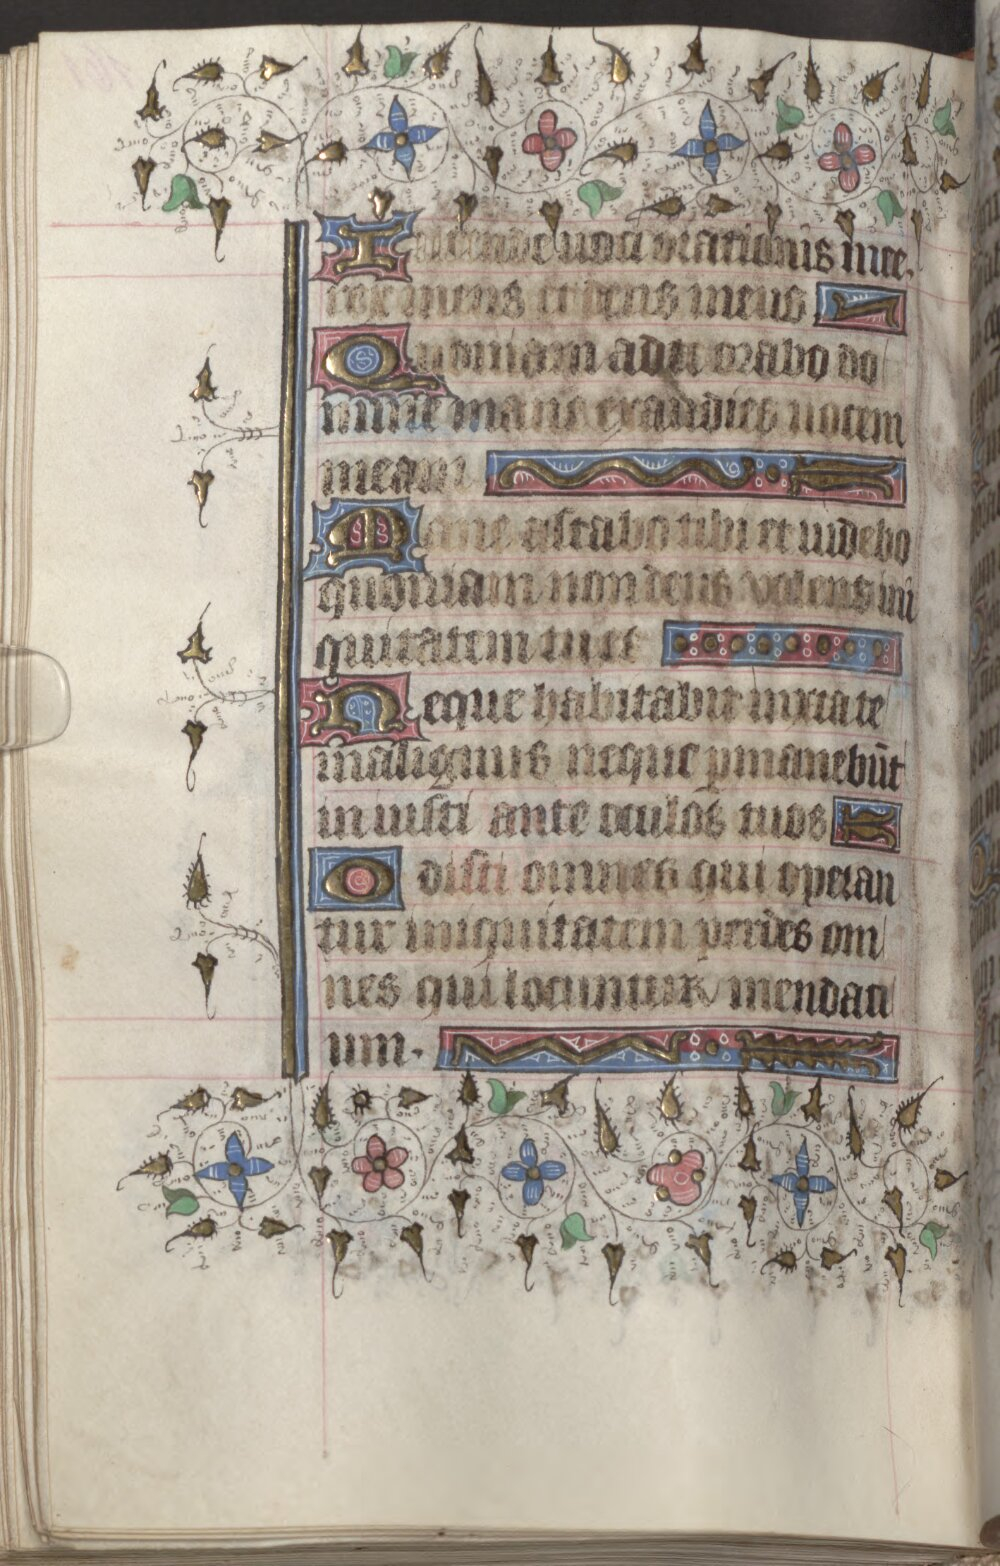 Intende uoci orationis mee.
rex meus et deus meus
Quoniam ad te orabo do
mine mane exaudies uocem
meam
Mane astabo tibi et uidebo
quoniam non deus volens ini
quitatem tu es
Neque habitabit iuxta te
malignus neque pmanebūt
iniusti ante oculos tuos
Odisti omnes qui operan
tur iniquitatem perdes om
nes qui locuntur mendaci
um.